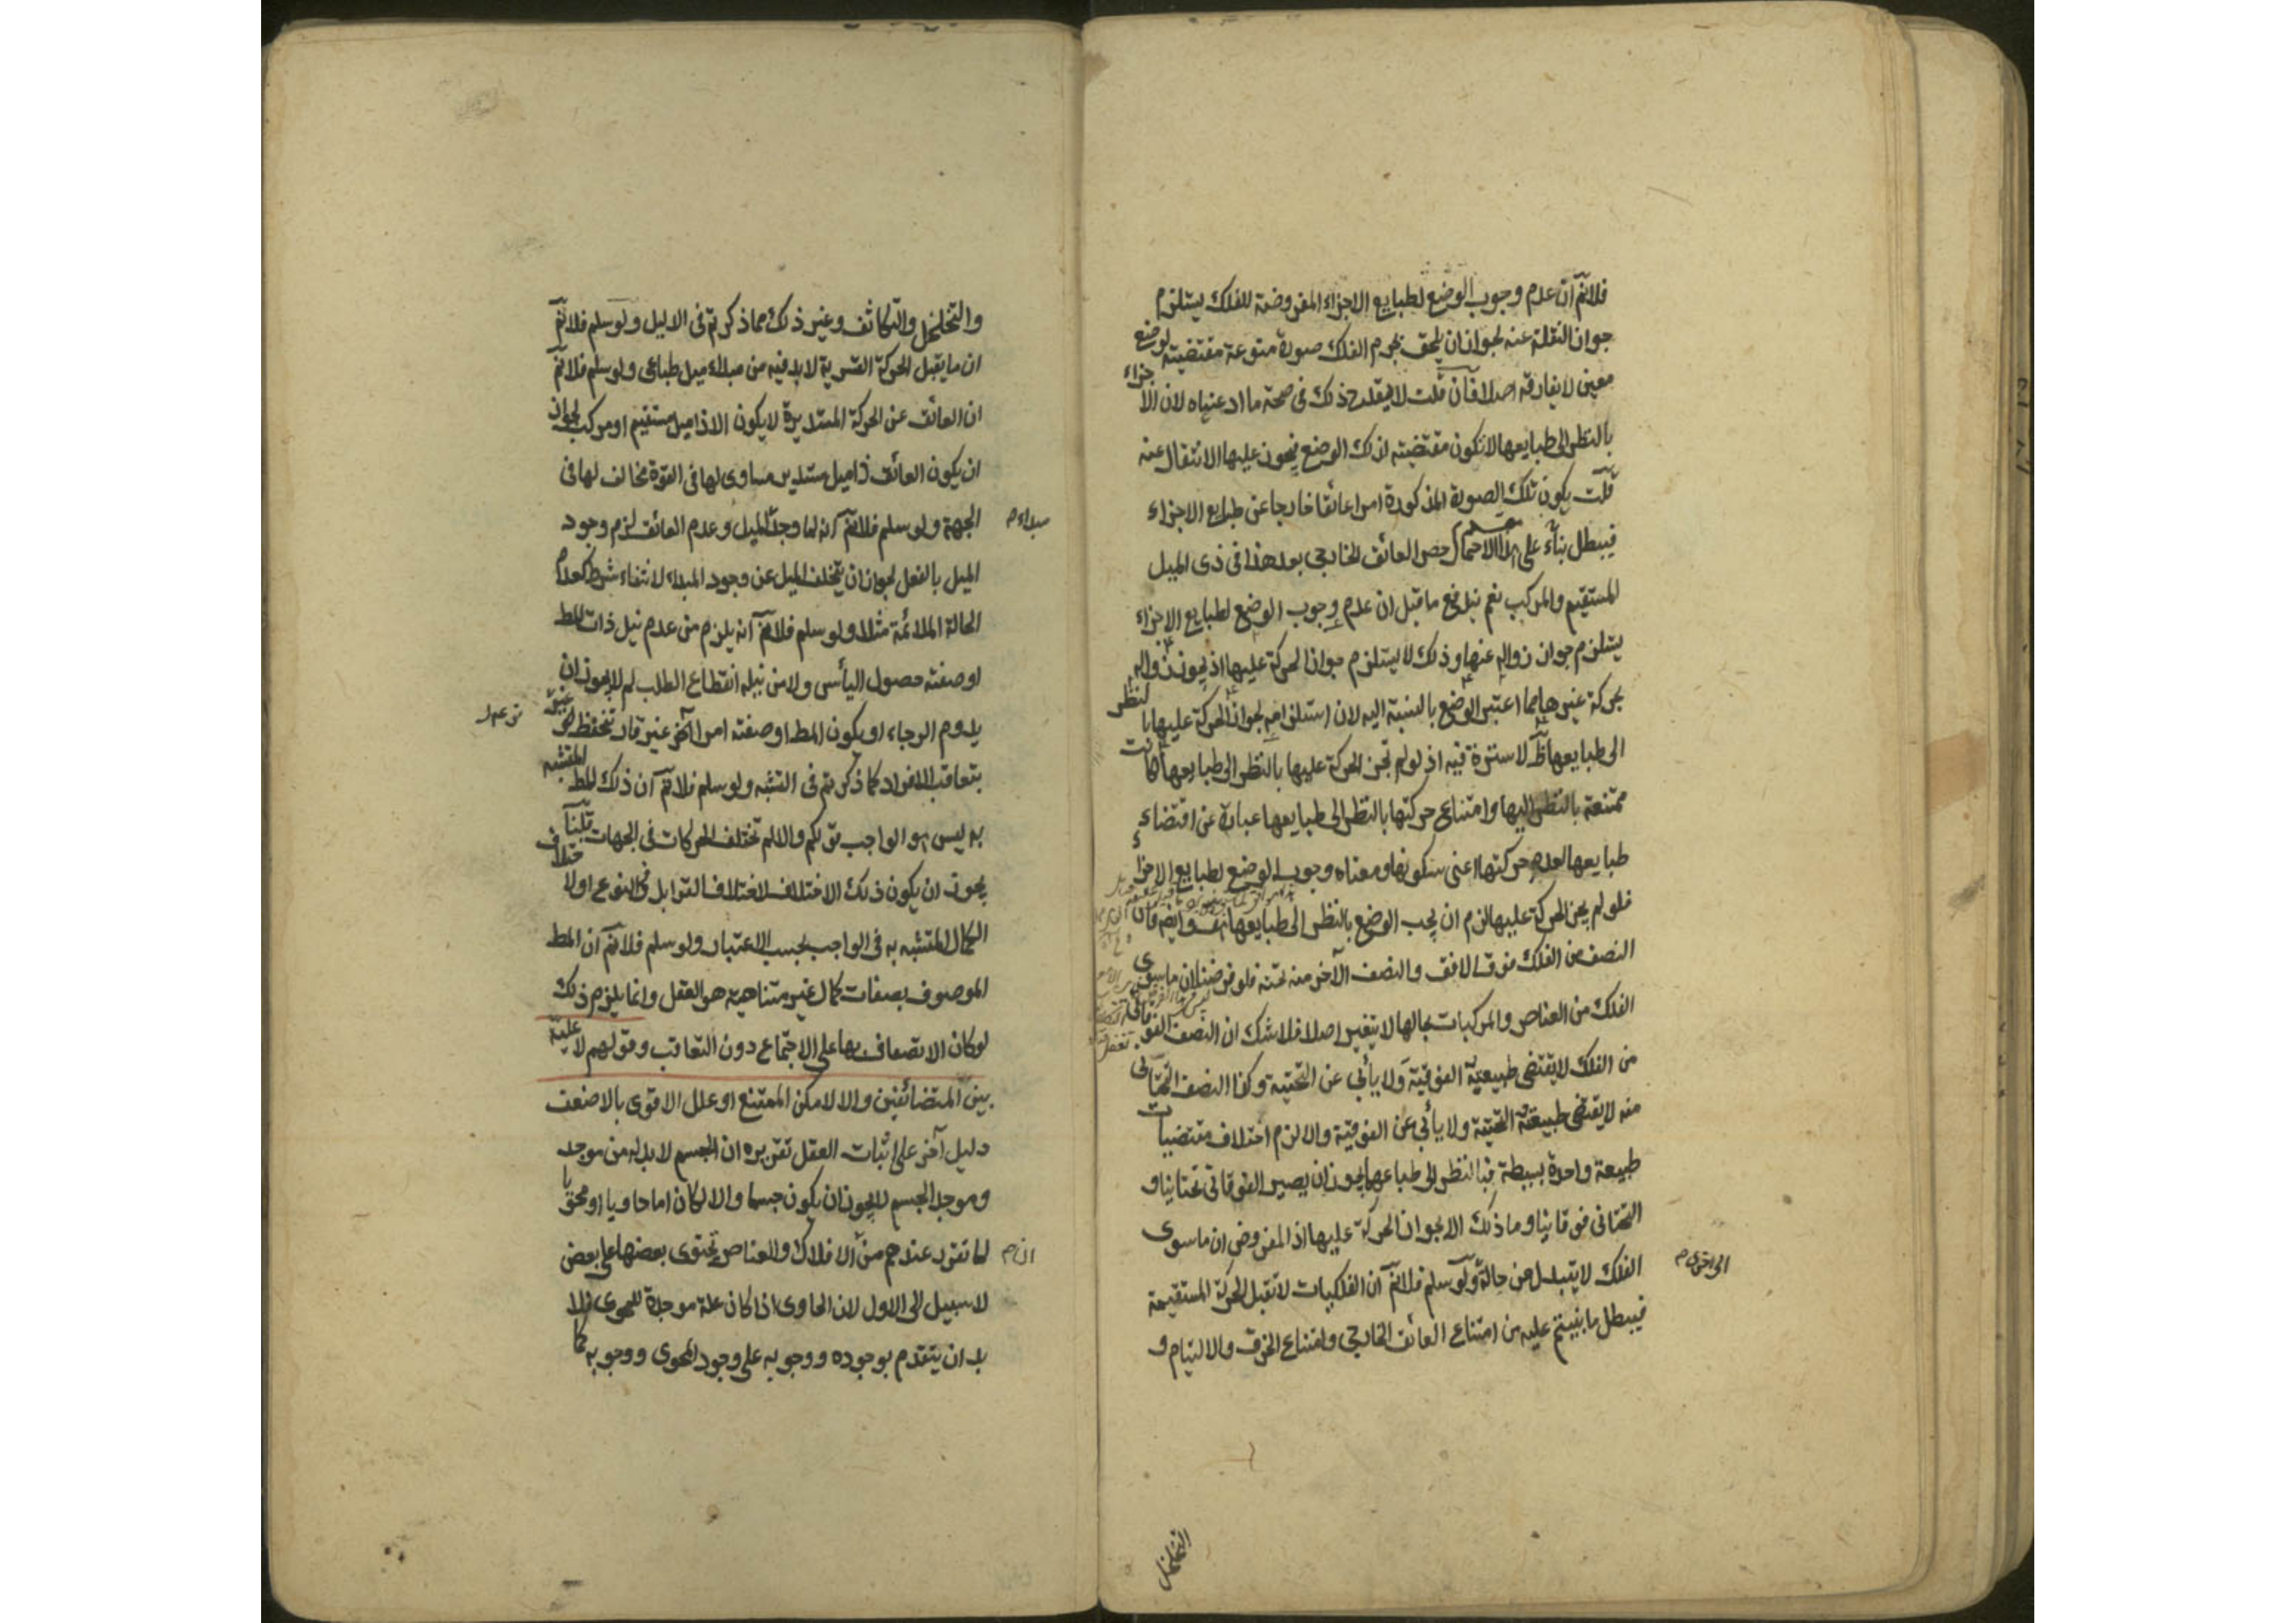 فلانم ان عدم وجوب الوضع لطبايع الاجزاء المفروضة للفلك يستلزم
جواز النقلة عنه لجواز ان يلحق بجرم الفلك صورة متوعة مقتضيته لوضع
معين لا يفارقه اصلا فآن قلت لا يقدح ذلك فى صحة ما ادعيناه لان الاجزاء
بالنظر الى طبايعها لا تكون مقتضيته لذلك الوضع فيجوز عليها الانتقال عنه
قلت يكون تلك الصورة المذكورة امرا عائقا خارجا عن طبايع الاجزاء
فيبطل بناء على هذا الاحتمال حصر العائق الخارجى بعد هذا فى ذى الميل
المستقيم والمركب نعم يندفع ما قيل ان عدم وجوب الوضع لطبايع الاجزاء
يستلزم جواز زواله عنها وذلك لا يستلزم جواز الحركة عليها اذ يجوز زواله
بحركة غيرها مما اعتبر الوضع بالنسبة اليه لان استلزامه لجواز الحركة عليها بالنظر
الى طبايعها ظ لا سترة فيه اذ لو لم تجز الحركة عليها بالنظر الى طبايعها كانت
ممتنعة بالنظر اليها وامتناع حركتها بالنظر الى طبايعها عبارة عن اقتضاء
طبايعها لعدم حركتها اعنى سكونها ومعناه وجوب الوضع لطبايع الاجزاء
فلو لم يجز الحركة عليها لزم ان يجب الوضع بالنظر الى طبايعها هف وايضا فان
النصف من الفلك فوق الافق والنصف الآخر منه تحته فلو فرضنا ان ما سوى
الفلك من العناصر والمركبات بحالها لا يتغير اصلا فلا شك ان النصف الفوقانى
من الفلك لا يقتضى طبيعية الفوقية ولا يأبى عن التحتية وكذا النصف التحتانى
منه لا يقتضى طبيعته التحتية ولا يأبى عن الفوقية والا لزم اختلاف مقتضيات
طبيعة واحدة بسيطة فبالنظر الى طباعهما يجوز ان يصير الفوقانى تحتانيا و
التحتانى فوقانيا وما ذلك الا بجواز الحركة عليها اذ المفروض ان ما سوى
الفلك لا يتبدل من حالة ولو سلم فلانم ان الفلكيات لا تقبل الحركة المستقيمة
الى اخرى م
فيبطل ما بنيتم عليه من امتناع العائق الخارجى وامتناع الخرق والالتيام و
التخلخل
والتخلخل والتكاثف وغير ذلك مما ذكرتم فى الدليل ولو سلم فلانم
ان ما يقبل الحركة القسرية لا بد فيه من مبداء ميل طباعى ولو سلم فلانم
ان العائق عن الحركة المستديرة لا يكون الا ذا ميل مستقيم او مركب لجواز
ان يكون العائق ذا ميل مستدير مساوى لها فى القوة مخالف لها فى
الجهة ولو سلم فلانم انه لما وجد الميل وعدم العائق لزم وجود
مبداء م
الميل بالفعل لجواز ان يتخلف الميل عن وجود المبداء لانتفاء شرط كعدم
الحالة الملائمة مثلا ولو سلم فلانم انه يلزم من عدم نيل ذات المط
او صفته حصول اليأس ولا من نيله انقطاع الطلب لم لا يجوز ان
يدوم الرجاء او يكون المط او صفته امرا آخر غير قار تحفظ نوعيته
بتعاقب الافراد كما ذكرتم فى التشبه ولو سلم فلانم ان ذلك المط المتشبه
به ليس هو الواجب قولكم والا لم تختلف الحركات فى الجهات قلنا
يجوز ان يكون ذلك الاختلاف لاختلاف القوابل فى النوع او لاختلاف
الكمال المتشبه به فى الواجب بحسب الاعتبار ولو سلم فلانم ان المط
الموصوف بصفات كمال غير متناهية هو العقل وانما يلزم ذلك
لو كان الاتصاف بها على الاجتماع دون التعاقب وقولهم لا علية
بين المتضائفين والا لامكن الممتنع او علل الاقوى بالاضعف
دليل آخر على اثبات العقل تقريره ان الجسم لا بد له من موجد
وموجد الجسم لا يجوز ان يكون جسما والا لكان اما حاويا او محويا
لما تقرر عندهم من الافلاك والعناصر تحتوى بعضها على بعض
ان م
لا سبيل الى الاول لان الحاوى اذا كان علة موجدة للمحوى فلا
بد ان يتقدم بوجوده ووجوبه على وجود المحوى ووجوبه كما